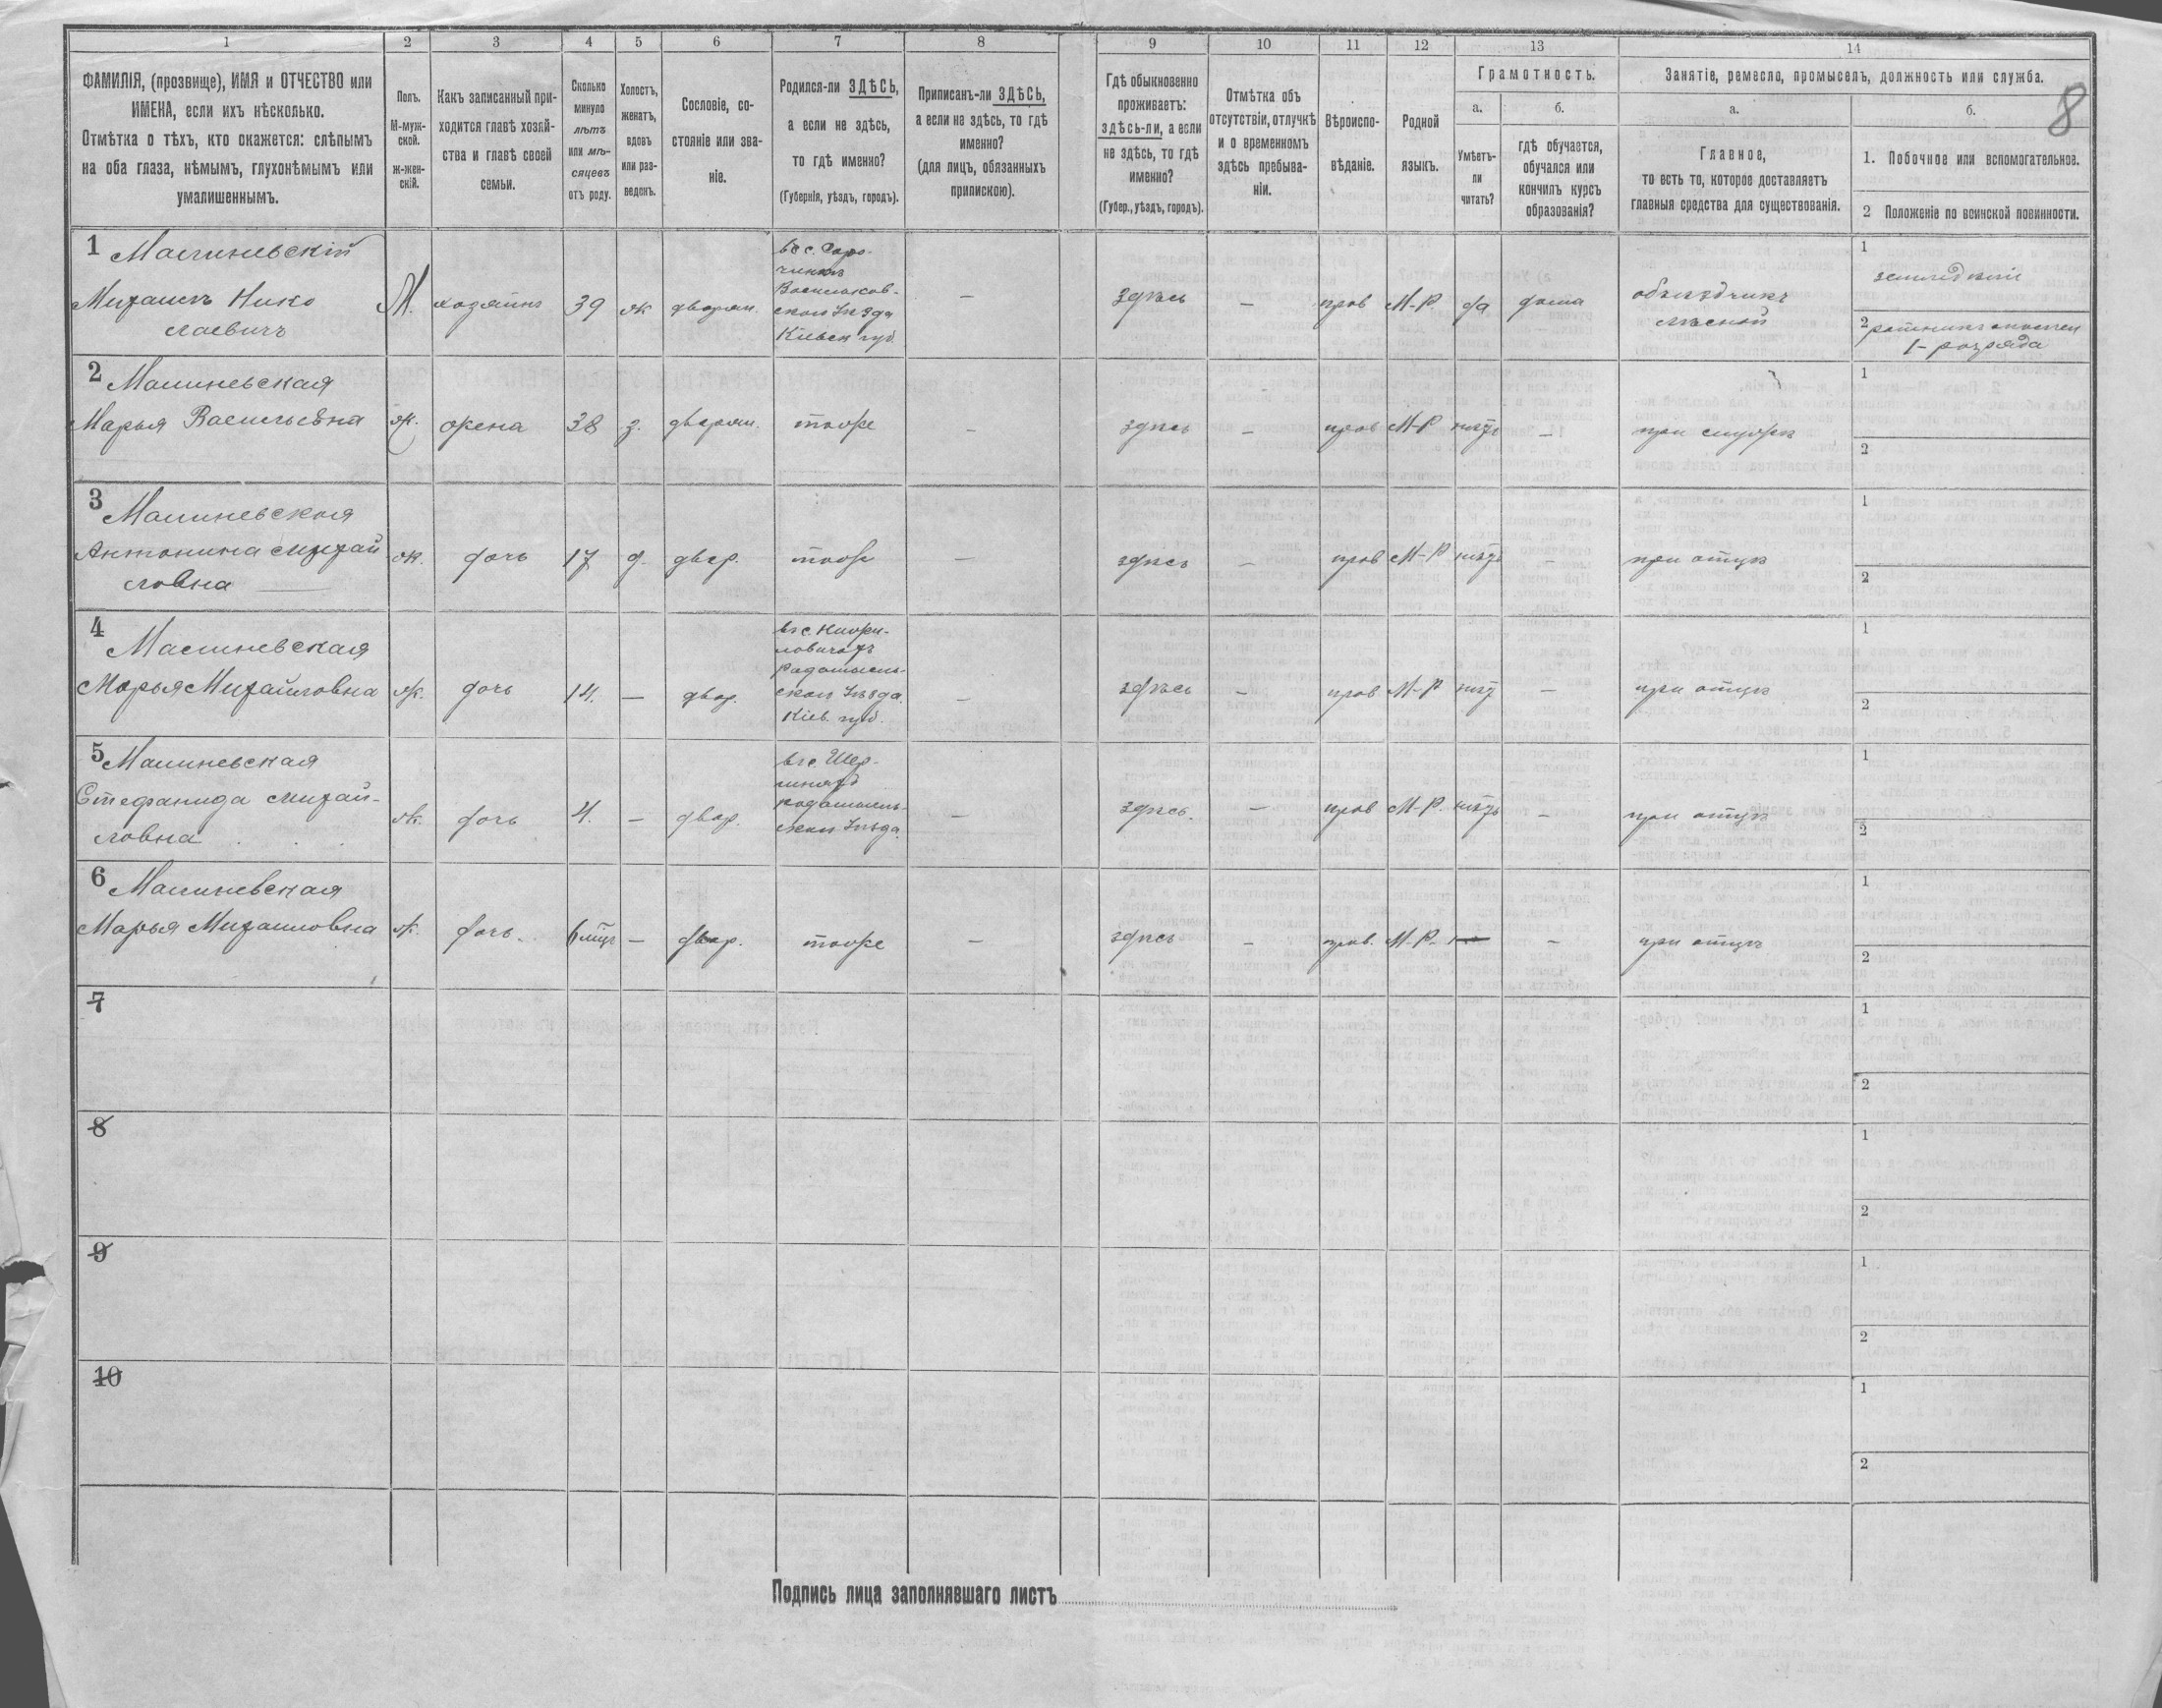 1 2 3 4 5 6 7 8 9 10 11 12 13 14
ФАМИЛІЯ, (прозвище), ИМЯ и ОТЧЕСТВО или
ИМЕНА, если ихъ нѣсколько.
Отмѣтка о тѣхъ, кто окажется: слѣпымъ
на оба глаза, нѣмымъ, глухонѣмымъ или
умалишеннымъ.
Полъ.
М-муж-
ской.
ж-жен-
скій.
Какъ записанный при-
ходится главѣ хозяй-
ства и главѣ своей
семьи.
Сколько
минуло
лѣтъ
или мѣ-
сяцевъ
отъ роду.
Холостъ,
женатъ,
вдовъ
или раз-
веденъ.
Сословіе, со-
стояніе или зва-
ніе.
Родился-ли ЗДѢСЬ,
а если не здѣсь,
то гдѣ именно?
(Губернія, уѣздъ, городъ).
Приписанъ-ли ЗДѢСЬ,
а если не здѣсь, то гдѣ
именно?
(для лицъ, обязанныхъ
припискою).
Гдѣ обыкновенно
проживаетъ:
здѣсь-ли, а если
не здѣсь, то гдѣ
именно?
(Губер., уѣздъ, городъ).
Отмѣтка объ
отсутствіи, отлучкѣ
и о временномъ
здѣсь пребыва-
ніи.
Вѣроиспо-
вѣданіе.
Родной
языкъ.
Грамотность.
а.
Умѣетъ-
ли
читать?
б.
гдѣ обучается,
обучался или
кончилъ курсъ
образованія?
Занятіе, ремесло, промыселъ, должность или служба.
а.
Главное,
то есть то, которое доставляетъ
главныя средства для существованія.
б.
8
1. Побочное или вспомогательное.
2 Положеніе по воинской повинности.
1 Малиневскій
Михаилъ Нико
лаевичъ
М.
хозяинъ
39
ж
дворян.
въ с.
Васильков-
ском Уѣзда
Кіевск губ.
—
здѣсь
—
прав
М-Р.
да
дома
объѣздчикъ
лѣсной
1
земледѣліе
2 ратникъ ополчен
1- розряда
2 Малиневская
Марья Васильевна
ж.
жена
38
з.
дворян.
тоже
—
здѣсь
—
прав
М-Р
нѣтъ
—
при мужѣ
1
2
3 Малиневская
Антонина Михай
ловна
ж.
дочь
17
д.
двор.
тоже
—
здѣсь
—
прав
М-Р
нѣтъ
—
при отцѣ
1
2
4 Малиневская
Марья Михайловна
ж.
дочь
14.
—
двор.
въ с.
ловичахъ
Радомысль-
ском Уѣзда
Кіев. губ.
—
здѣсь
—
прав
М-Р
нѣт
—
при отцѣ
1
2
5 Малиневская
Стефанида Михай-
ловна
ж.
дочь
4.
—
двор.
въ с. Шер-
Радомысль-
ском Уѣзда.
—
здѣсь.
—
прав
М-Р.
нѣтъ
—
при отцѣ
1
2
6 Малиневская
Марья Михаиловна
ж.
дочь.
6 мѣц
—
двор.
тоже
—
здѣсь
—
прав.
М-Р.
—
—
при отцѣ
1
2
7
1
2
8
1
2
9
1
2
10
1
2
Подпись лица заполнявшаго листъ